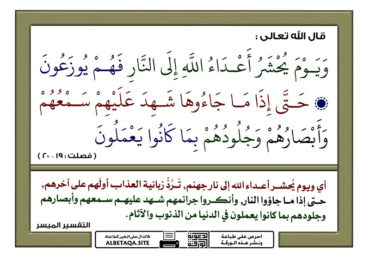 قال الله تعالى :
وَيَوْمَ يُحْشَرُ أَعْدَاءُ اللَّهِ إِلَى النَّارِ فَهُمْ يُوزَعُونَ
حَتَّى إِذَا مَا جَاءُوهَا شَهِدَ عَلَيْهِمْ سَمْعُهُمْ
وَأَبْصَارُهُمْ وَجُلُودُهُمْ بِمَا كَانُوا يَعْمَلُونَ
( فصلت : ١٩ - ٢٠ )
أي ويوم يُحشر أعداء الله إلى نار جهنم، تَرُدُّ زبانية العذاب أولَهم على آخرهم،
حتى إذا ما جاؤوا النار، وأنكروا جرائمهم شهد عليهم سمعهم وأبصارهم
وجلودهم بما كانوا يعملون في الدنيا من الذنوب والآثام.
التفسير الميسر
احرص على طباعة
ونشر هذه الورقة
الدال على الخير كفاعله
ALBETAQA.SITE